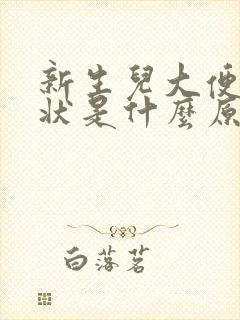 新生兒大便
狀是什麼原
白落茗